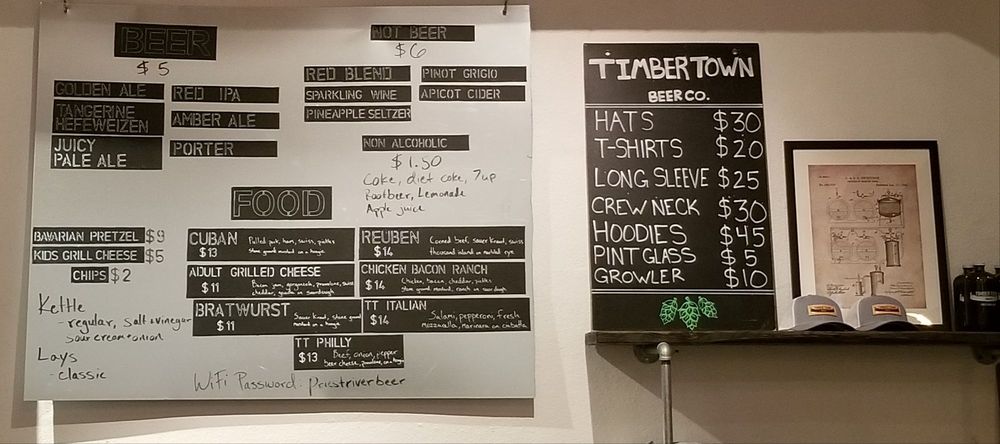 BEER
$5
GOLDEN ALE
TANGERINE
HEFEWEIZEN
JUICY
PALE ALE
RED IPA
AMBER ALE
PORTER
NOT BEER
$6
RED BLEND
SPARKLING WINE
PINEAPPLE SELTZER
PINOT GRIGIO
APICOT CIDER
NON ALCOHOLIC
$1.50
Coke, diet coke, 7up
Rootbeer, Lemonade
Apple juice
FOOD
BAVARIAN PRETZEL $9
KIDS GRILL CHEESE $5
CHIPS $2
Kettle
- regular, Salt & vinegar
sour cream & onion
Lays
- classic
CUBAN Pulled pork, ham, swiss, pickles
$13 stone ground mustard on a hoagie
ADULT GRILLED CHEESE
$11 Bacon jam, gorgonzola, provolone, swiss
cheddar, on sourdough
BRATWURST Sauer kraut, stone ground
$11 mustard on a hoagie
REUBEN Corned beef, sauer kraut, swiss
$14 thousand island on marbled rye
CHICKEN BACON RANCH
$14 Chicken, bacon, cheddar, pickles
stone ground mustard, ranch on sourdough
TT ITALIAN
$14 Salami, pepperoni, fresh
mozzarella, marinara on ciabatta
TT PHILLY
$13 Beef, onion, pepper
beer cheese, provolone, on a hoagie
WiFi Password: pricstriverbeer
TIMBERTOWN
BEER CO.
HATS $30
T-SHIRTS $20
LONG SLEEVE $25
CREW NECK $30
HOODIES $45
PINT GLASS $5
GROWLER $10